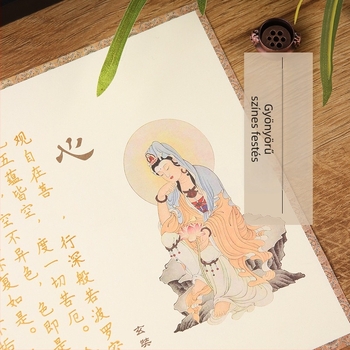 心
观自在菩 ，行深般若波罗
五蕴皆空 度一切苦厄。
空不异色，色即是
复如是。
玄奘
Gyönyörű
színes festés